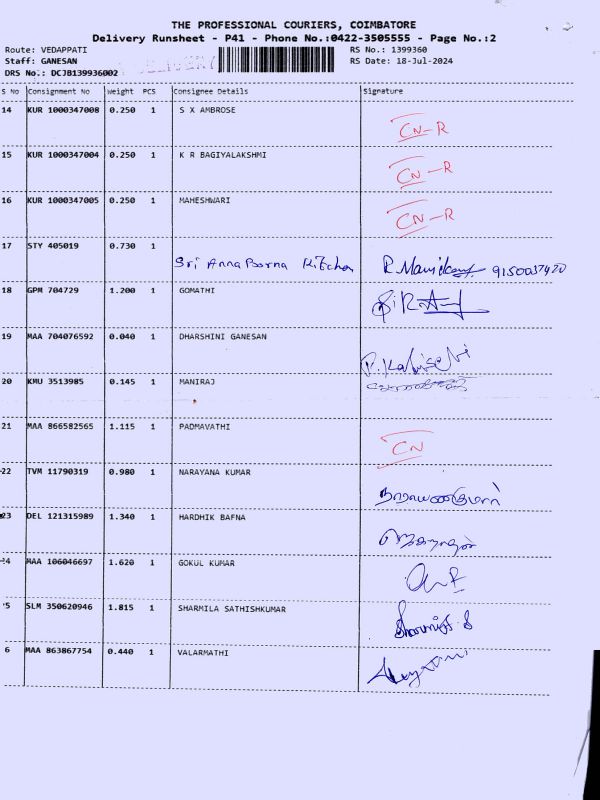 THE PROFESSIONAL COURIERS, COIMBATORE
Delivery Runsheet - P41 - Phone No.:0422-3505555 - Page No.:2
Route: VEDAPPATI RS No.: 1399360
Staff: GANESAN DELIVERY RS Date: 18-Jul-2024
DRS No.: DCJB139936002
S No Consignment No Weight PCS Consignee Details Signature
14 KUR 1000347008 0.250 1 S X AMBROSE CN-R
15 KUR 1000347004 0.250 1 K R BAGIYALAKSHMI CN-R
16 KUR 1000347005 0.250 1 MAHESHWARI CN-R
17 STY 405019 0.730 1
Sri AnnaPoorna Kitchen 9150037420
18 GPM 704729 1.200 1 GOMATHI
19 MAA 704076592 0.040 1 DHARSHINI GANESAN
20 KMU 3513985 0.145 1 MANIRAJ
21 MAA 866582565 1.115 1 PADMAVATHI CN
22 TVM 11790319 0.980 1 NARAYANA KUMAR நாராயணகுமார்
23 DEL 121315989 1.340 1 HARDHIK BAFNA
24 MAA 106046697 1.620 1 GOKUL KUMAR
5 SLM 350620946 1.815 1 SHARMILA SATHISHKUMAR
6 MAA 863867754 0.440 1 VALARMATHI